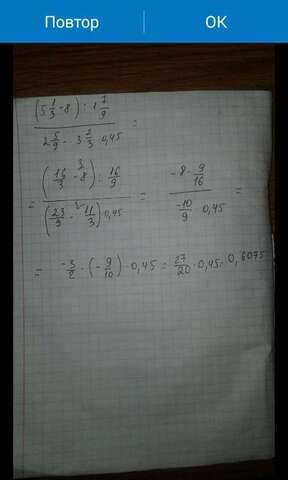 Повтор ОК
(5 1/3 - 8) : 1 7/9
2 5/9 - 3 2/3 · 0,45 =
= (16/3 - 8) : 16/9 / (23/9 - 11/3) · 0,45 = -8 · 9/16 / -10/9 · 0,45 =
= -3/2 · (-9/10) · 0,45 = 27/20 · 0,45 = 0,6075